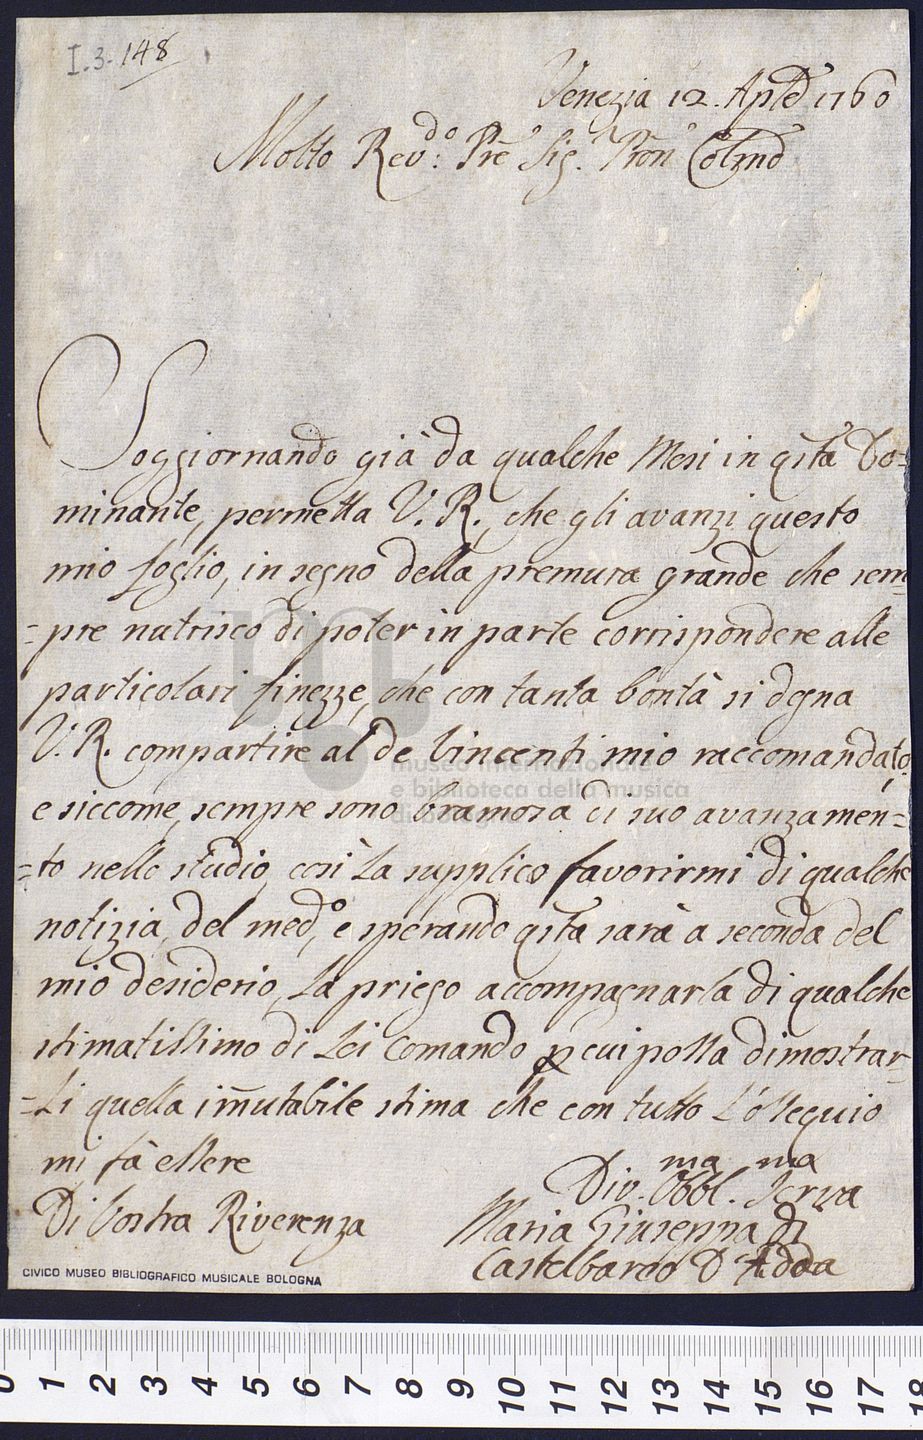 I.3.148
Venezia 12. Aple 1760
Molto Rev.do Pre Sig.r Pron Colmo
Soggiornando già da qualche Mesi in qsta Do=
minante, permetta V. R., che gli avanzi questo
mio foglio, in segno della premura grande che sem=
=pre nutrisco di poter in parte corrispondere alle
particolari finezze, che con tanta bontà si degna
V. R. compartire al de Vincenti mio raccomandato,
e siccome, sempre sono bramosa di suo avanzamen=
=to nello studio, così La supplico favorirmi di qualche
notizia, del med.o, e sperando qsta sarà a seconda del
mio desiderio, La priego accompagnarla di qualche
stimatissimo di Lei Comando p cui possa dimostrar=
=Li quella im̅utabile stima che con tutto L'ossequio
mi fà essere
Di Vostra Riverenza
Div.ma Obbl.ma Serva
Maria Giuseppa di
Castelbarco D'Adda
museo internazionale
e biblioteca della musica
di bologna
CIVICO MUSEO BIBLIOGRAFICO MUSICALE BOLOGNA
0 1 2 3 4 5 6 7 8 9 10 11 12 13 14 15 16 17 18